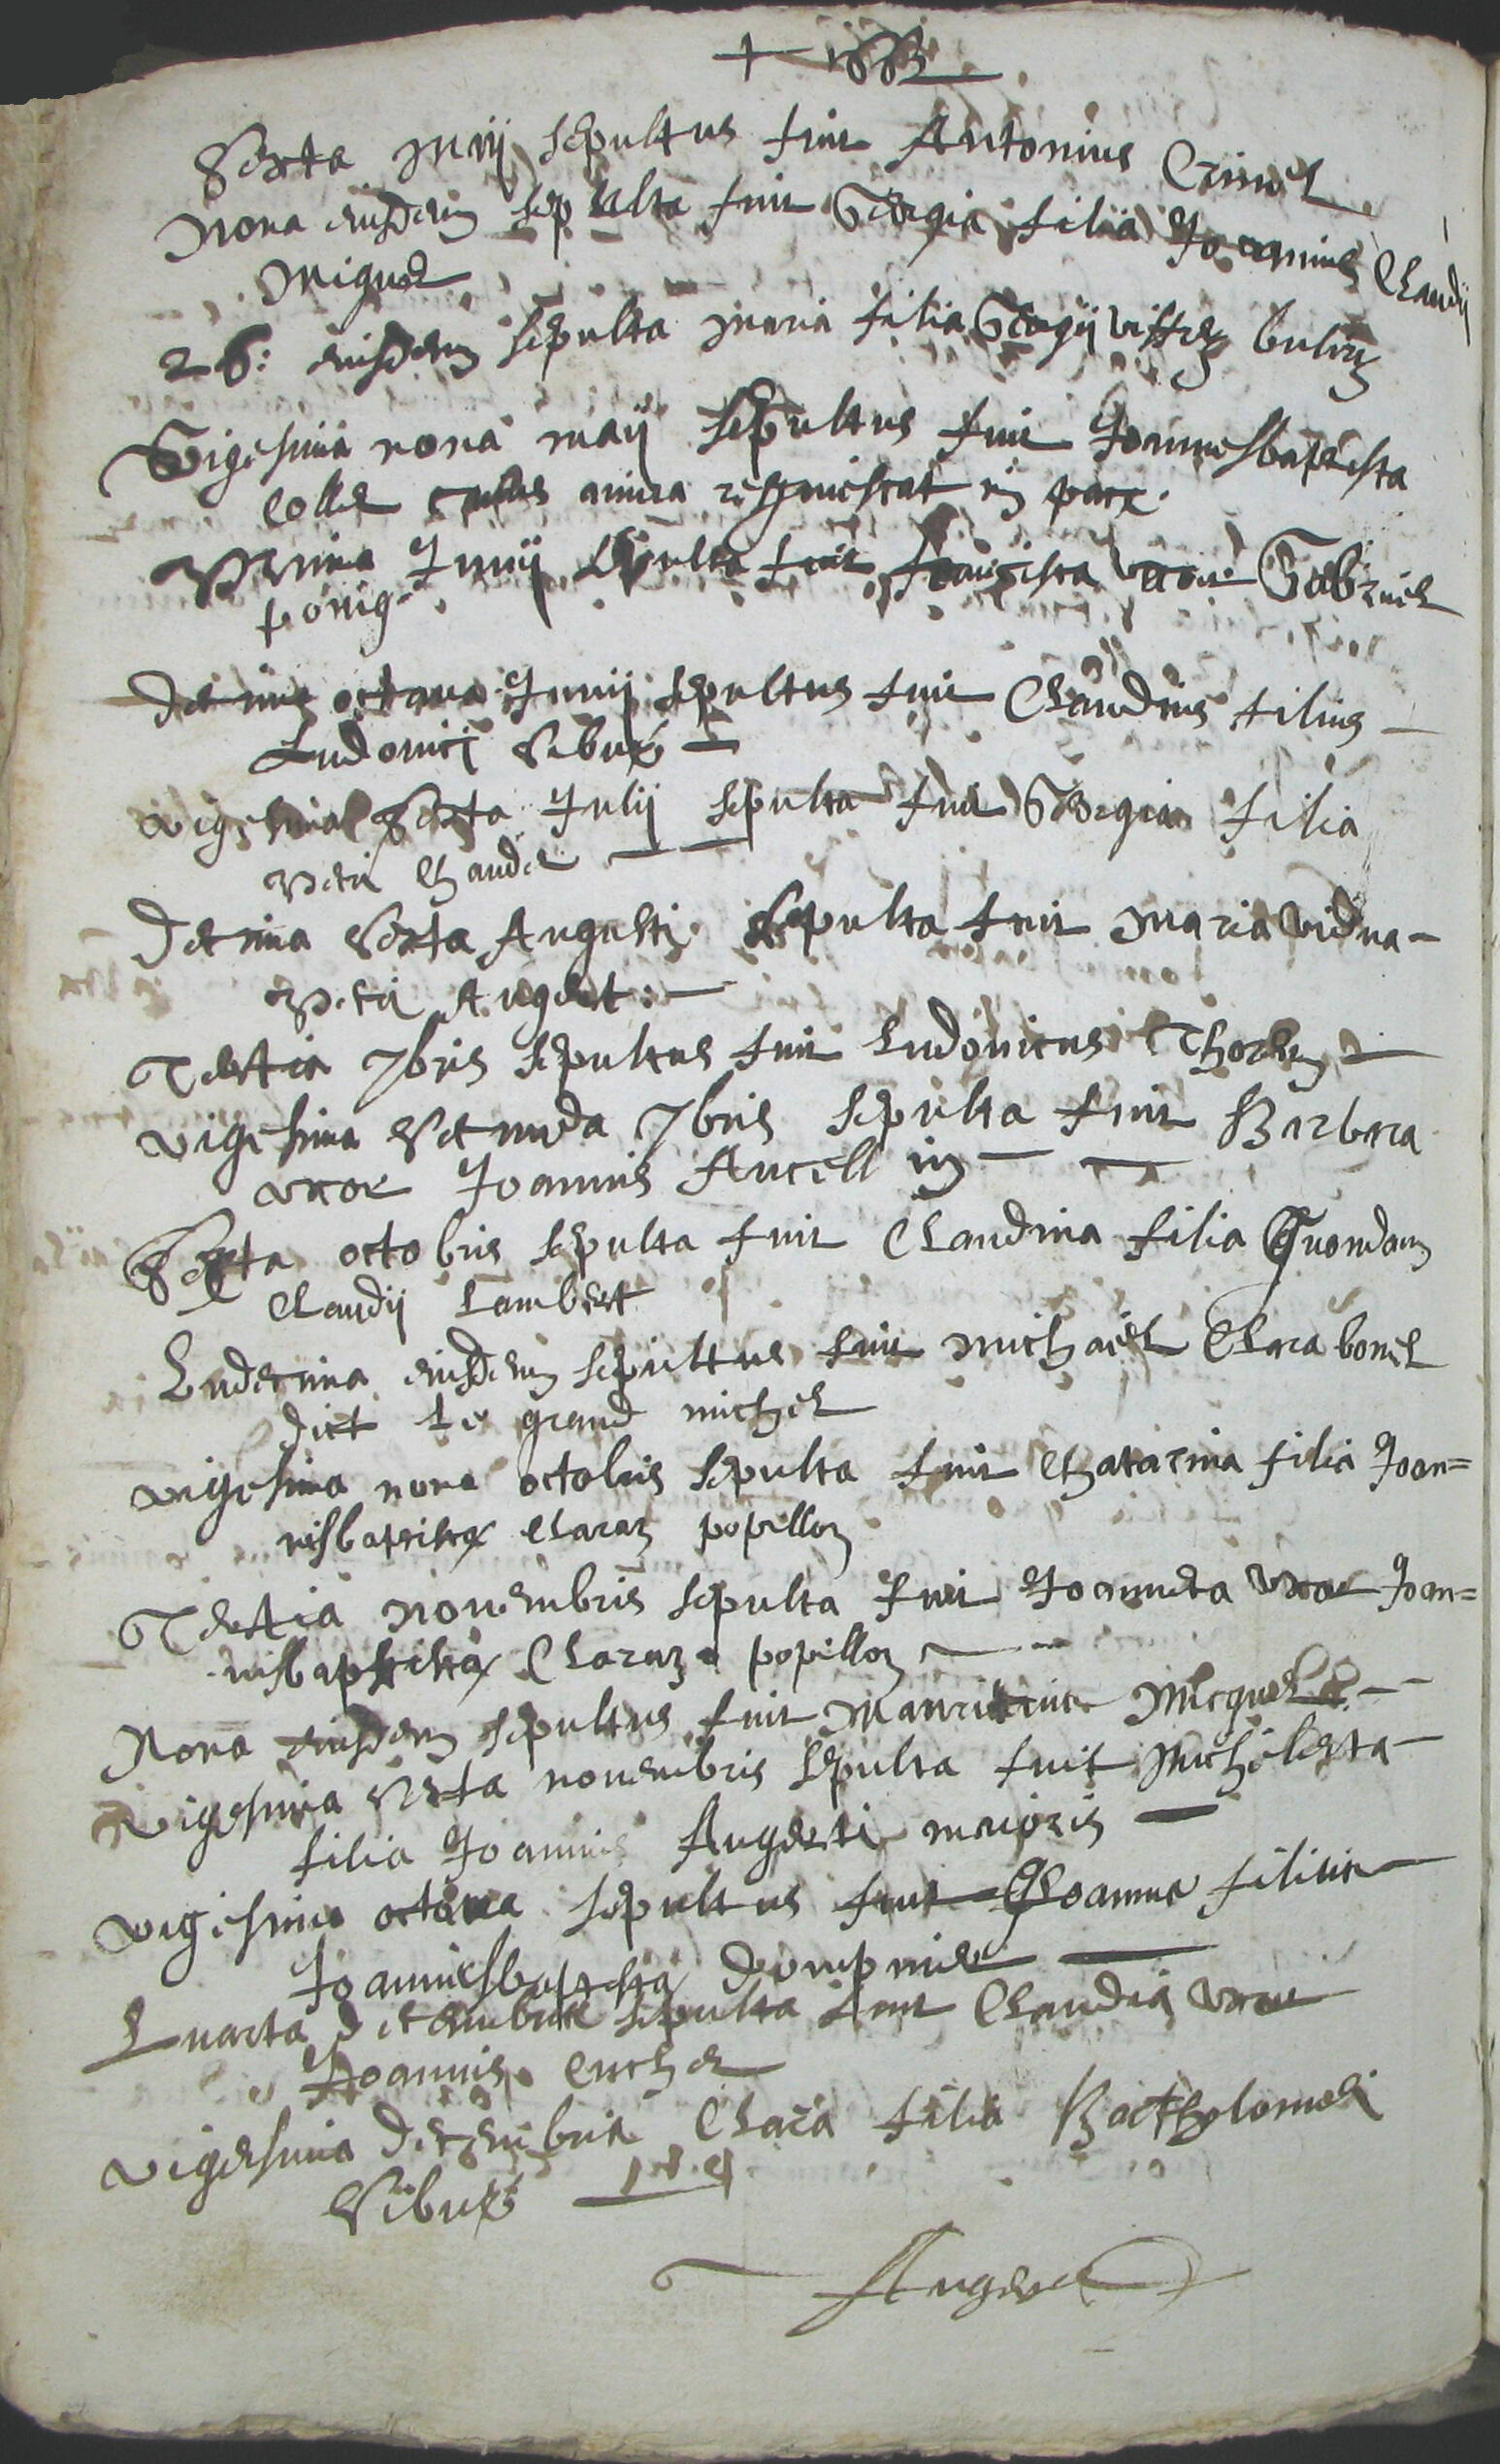 + 1663
Sexta maij sepultus fuit Antonius Crinel
Nona eiusdem sepulta fuit Georgia filia Joannis Claudij
Miguet
26: eiusdem sepulta maria filia Georgij
Vigesima nona maij sepultus fuit Joannesbaptista
collet cuius anima requiescat in pace.
Prima Junij sepulta fuit francisca uxor Gabriel
ponig
decima octava Junij sepultus fuit Claudius filius
Ludovici Sibué
vigesima sexta Julij sepulta fuit Georgia filia
Petri Chaudet
decima sexta Augusti sepulta fuit maria vidua
Petri Augert:
Tertia 7bris sepultus fuit Ludovicus
vigesima secunda 7bris sepulta fuit Barbara
uxor Joannis Ancellin
Sexta octobris sepulta fuit Claudina filia Quondam
Claudij Lambert
Undecima eiusdem sepultus fuit michael Clara bonel
dict le grand michel
vigesima nona octobris sepulta fuit Chatarina filia Joan=
nisbaptistæ Claraz popillon
Tertia novembris sepulta fuit Joanneta uxor Joan=
nisbaptistæ Claraz popillon
Nona eiusdem sepultus fuit Mauritius Miguet
vigesima sexta novembris sepulta fuit Micheleta
filia Joannis Augerti maioris
vigesima octava sepultus fuit Joannes filius
Joannisbaptistæ dompnier
Quarta decembris sepulta fuit Claudia uxor
Joannis Cuchet
vigesima decembris Clara filia Bartholomei
Sibué
Augert